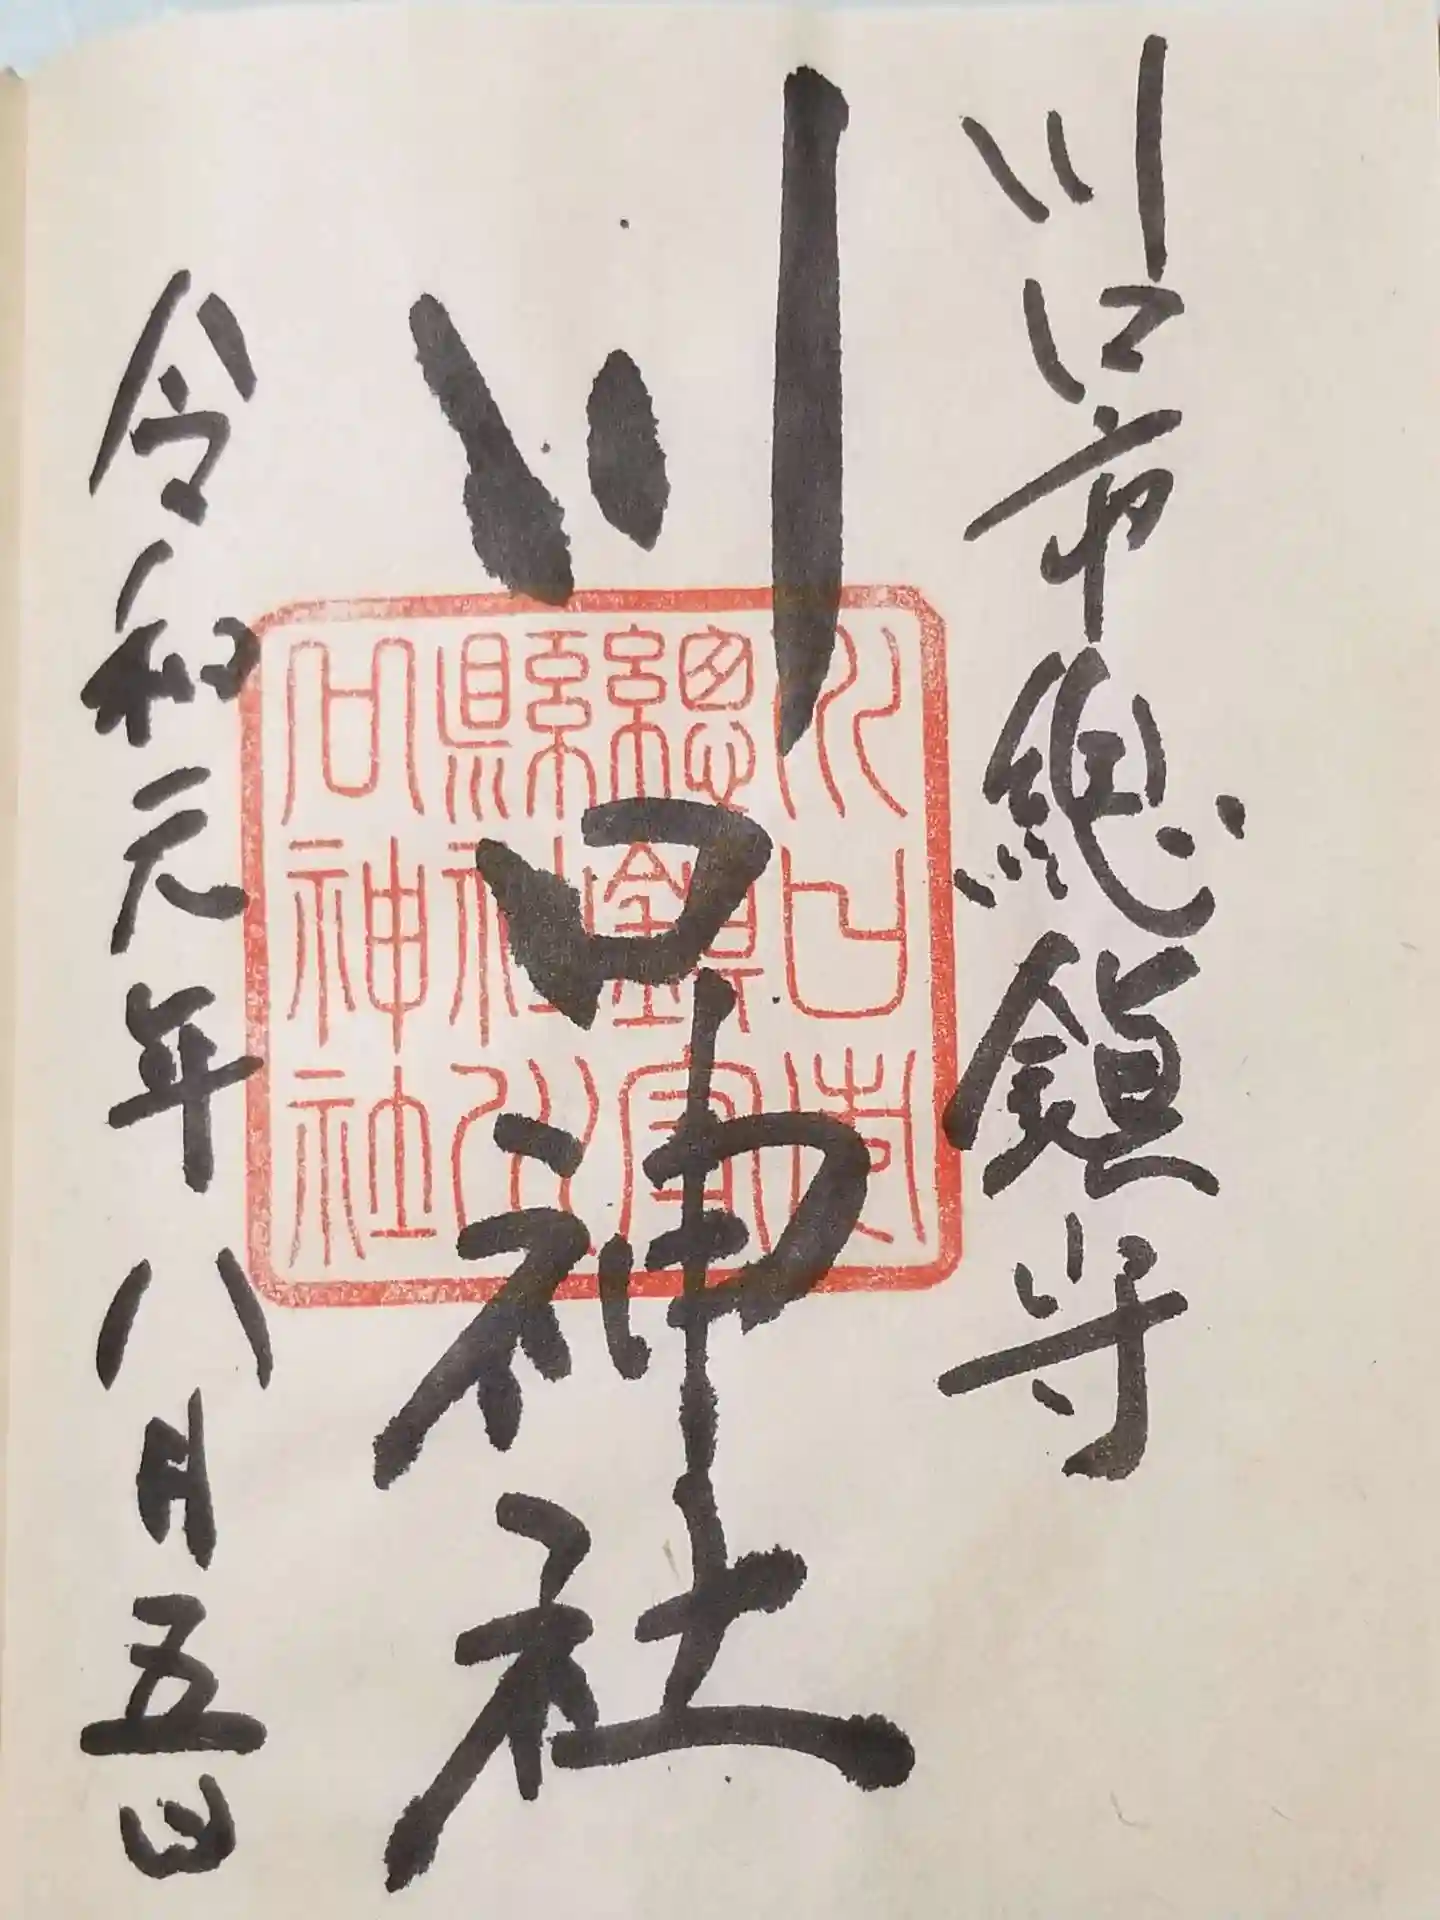 川口市總鎮守
川口神社
令和元年八月五日
川口市
總鎮守
縣社川
口神社